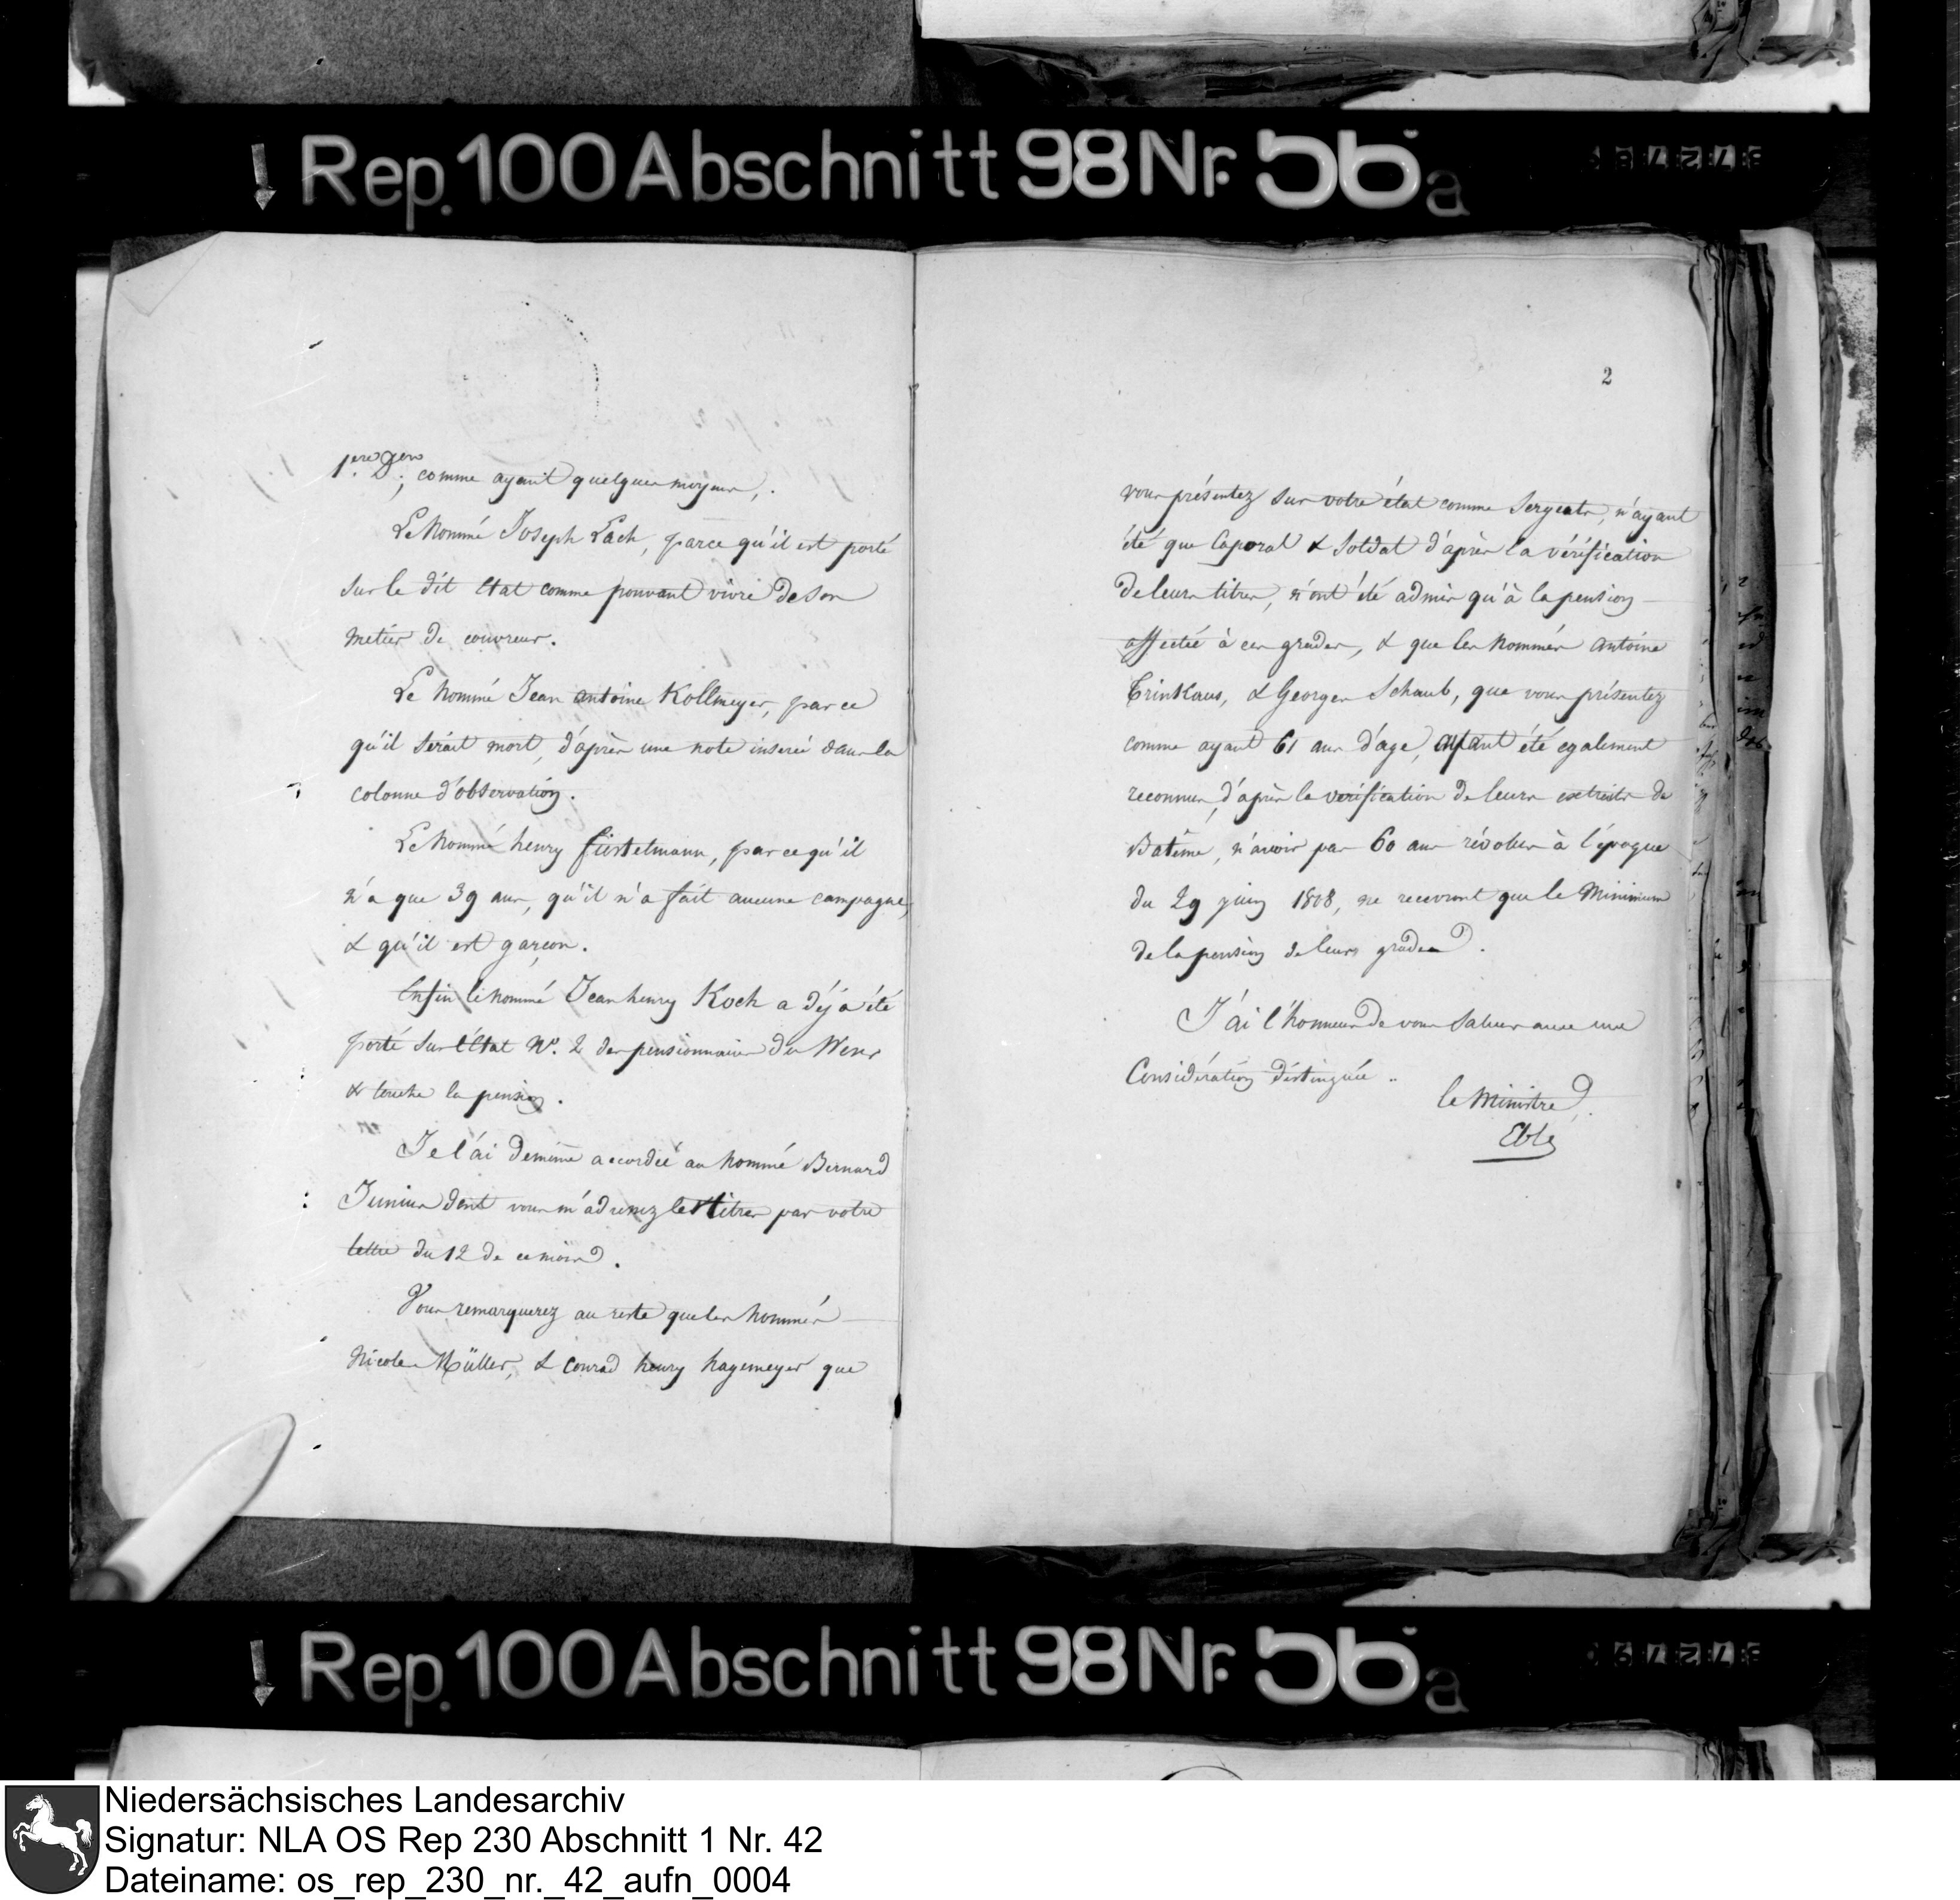 Rep. 100 Abschnitt 98 Nr. 56a
1.ere Don; comme ayant quelques moyens,.
Le Nommé Joseph Lach, parce qu'il est porté
sur le dit Etat comme pouvant vivre de son
metier de couvreur.
Le Nommé Jean Antoine Kollmeyer, parce
qu'il serait mort, d'après une note inserée dans la
colonne d'observation.
Le Nommé henry fürstelmann, parce qu'il
n'a que 39 ans, qu'il n'a fait aucune campagne,
& qu'il est garçon.
Enfin le nommé Jean henry Koch a déjà été
porté sur l'Etat N.o 2 des pensionnaires du Weser
& touche la pension.
Je l'ai de même accordée au nommé Bernard
Junius dont vous m'adressez les titres par votre
lettre du 12 de ce mois.
Vous remarquerez au reste que les nommés
Nicolas Müller, & Conrad henry hagemeyer que
2
vous présentez sur votre état comme Sergents, n'ayant
été que Caporal & Soldat d'après la vérification
de leurs titres, n'ont été admis qu'à la pension
affectée à ces grades, & que les nommés Antoine
Trinkaus, & Georges Schaub, que vous présentez
comme ayant 61 ans d'age, ayant été egalement
reconnus, d'après la vérification de leurs extraits de
Batême, n'avoir pas 60 ans révolus à l'époque
du 29 juin 1808, ne recevront que le Minimum
de la pension de leurs grades.
J'ai l'honneur de vous saluer avec une
Considération distinguée..
le Ministre,
Eblé
Rep. 100 Abschnitt 98 Nr. 56a
Niedersächsisches Landesarchiv
Signatur: NLA OS Rep 230 Abschnitt 1 Nr. 42
Dateiname: os_rep_230_nr._42_aufn_0004